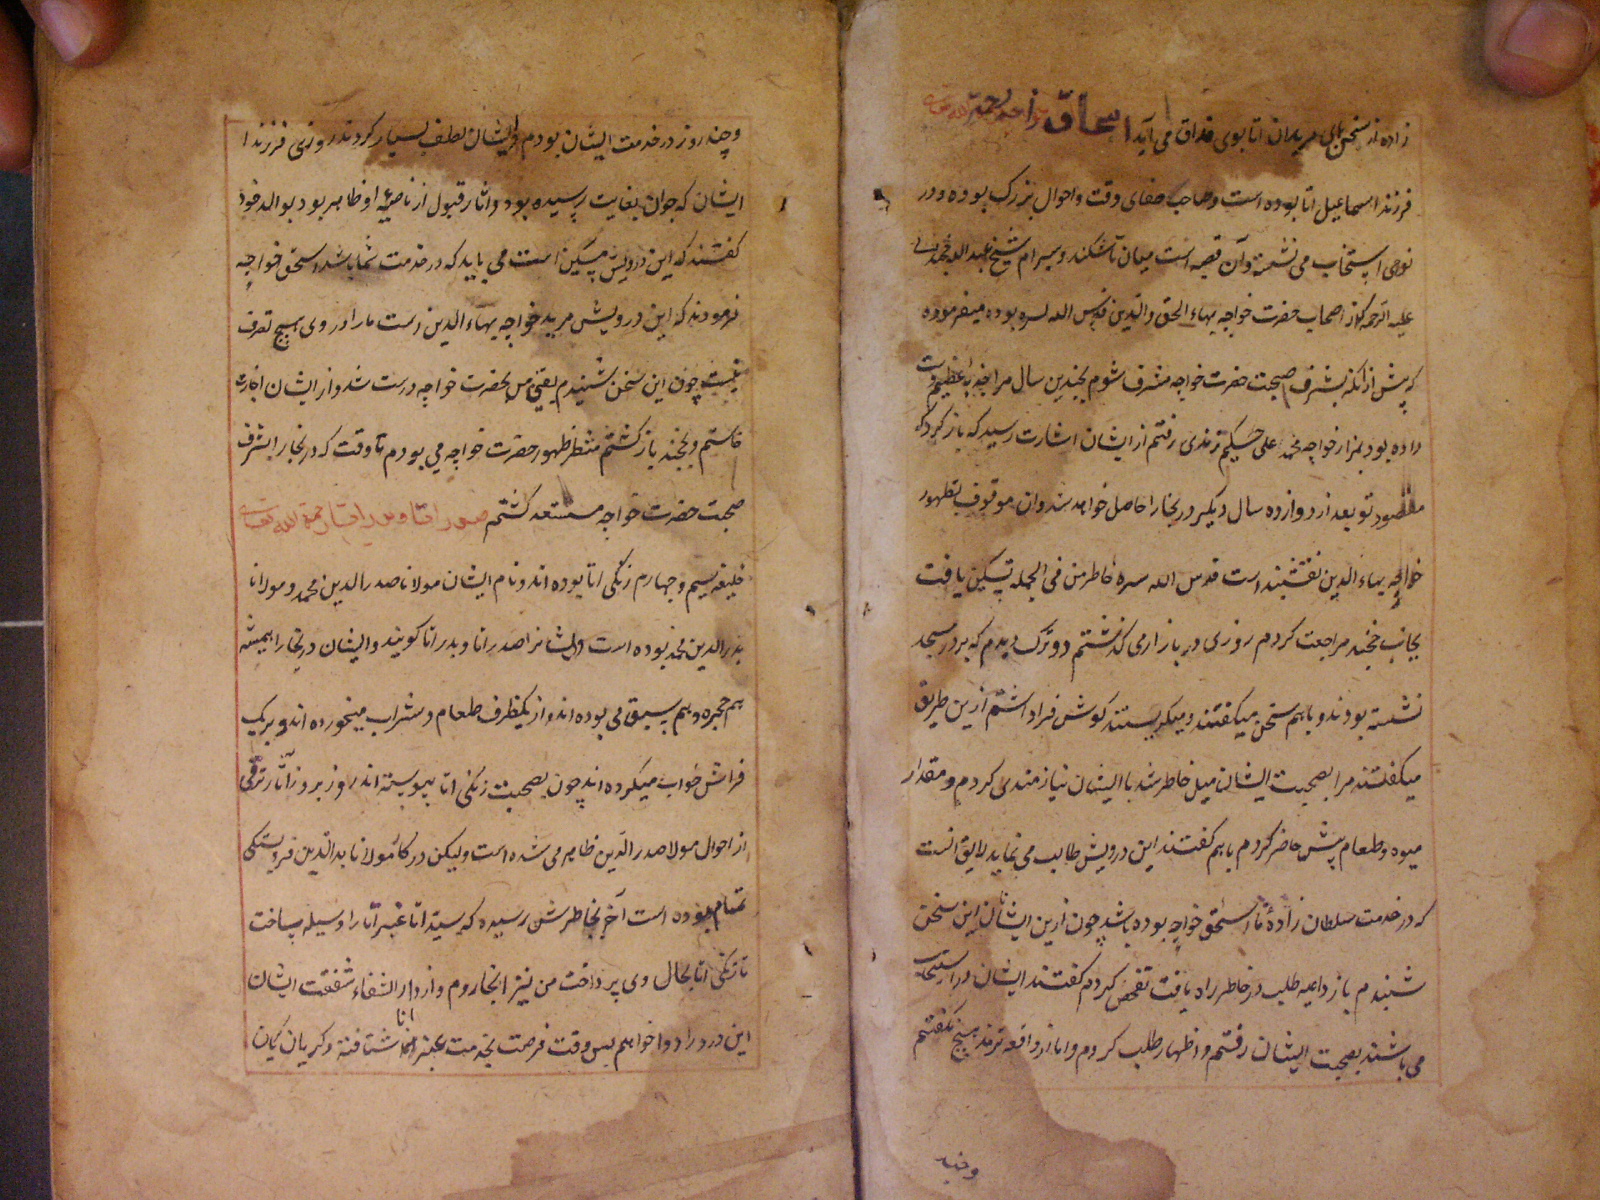 زاده از سخن بای مریدان اتا بوی مذاق می آید اسحاق خواجه رحمة الله علیه
فرزند اسماعیل اتا بوده است و صاحب صفای وقت و احوال بزرک بوده و در
نواحی اسپتخاب می نشسته و آن قصبه است میان تاشکند و سیرام شیخ عبدالله خجندی
علیه الرحمه که از اصحاب حضرت خواجه بهاء الحق والدین قدس الله سره بوده میفرموده
که پیش از آنکه بشرف صحبت حضرت خواجه مشرف شوم بچندین سال مرا جذبه عظیم دست
داده بود بمزار خواجه محمد علی حکیم ترمذی رفتم از ایشان اشارت رسید که باز کرد که
مقصود تو بعد از دوازده سال دیکر در بخارا حاصل خواهد شد وان موقوف بظهور
خواجه بهاء الدین نقشبند است قدس الله سره خاطر من فی الجمله تسکین یافت
بجانب خجند مراجعت کردم روزی در بازار می کذشتم دو ترک دیدم که بر در مسجد
نشسته بودند و باهم سخن میکفتند و میکریستند کوش فرا داشتم ازین طریق
میکفتند مرا بصحبت ایشان میل خاطر شد با ایشان نیازمندی کردم و مقدار
میوه و طعام پیش حاضر کردم باهم کفتند این درویش طالب می نماید لایق انست
که در خدمت سلطان زاده ما اسحق خواجه بوده باشد چون ازین ایشان این سخن
شنیدم باز داعیه طلب در خاطر راه یافت تفحص کردم کفتند ایشان در اسپتخاب
می باشند بصحبت ایشان رفتم و اظهار طلب کردم و اما از واقعه ترمذ هیچ نکفتم
وچند
وچند روز در خدمت ایشان بودم و ایشان لطف بسیار کردند روزی فرزند ا
ایشان که جوان بغایت رسیده بود و اثار قبول از ناصیه او ظاهر بود بوالد خود
کفتند که این درویش مسکین است می باید که در خدمت شما باشد اسحق خواجه
فرمودند که این درویش مرید خواجه بهاء الدین است مارا در وی هیچ تصرف
نیست چون این سخن شنیدم یقین من بحضرت خواجه درست شد و از ایشان اجازت
خاستم و بخجند باز کشتم منتظر ظهور حضرت خواجه می بودم تا وقت که در بخارا بشرف
صحبت حضرت خواجه مستسعد کشتم صدر اتا و بدر اتا رحمة الله تعالی
خلیفه سیم و چهارم زنکی اتا بوده اند و نام ایشان مولانا صدر الدین محمد و مولانا
بدر الدین محمد بوده است و ایشانرا صدر اتا و بدر اتا کویند و ایشان در بخارا همیشه
هم حجره و هم سبق می بوده اند و از یکظرف طعام و شراب میخورده اند و بر یک
فراش خواب میکرده اند چون بصحبت زنکی اتا پیوسته اند روز بروز آثار ترقی
از احوال مولا صدر الدین ظاهر می شده است و لیکن در کار مولانا بدر الدین فروبستکی
تمام بوده است آخر بخاطرش رسیده که سید اتا عنبر اتا را وسیله ساخت
تا زنکی اتا بحال وی پرداخت من نیز انجا روم و از دار الشفاء شفقت ایشان
این درد را دوا خواهم پس وقت فرصت بخدمت عنبر انا شتافته و کریان کیان